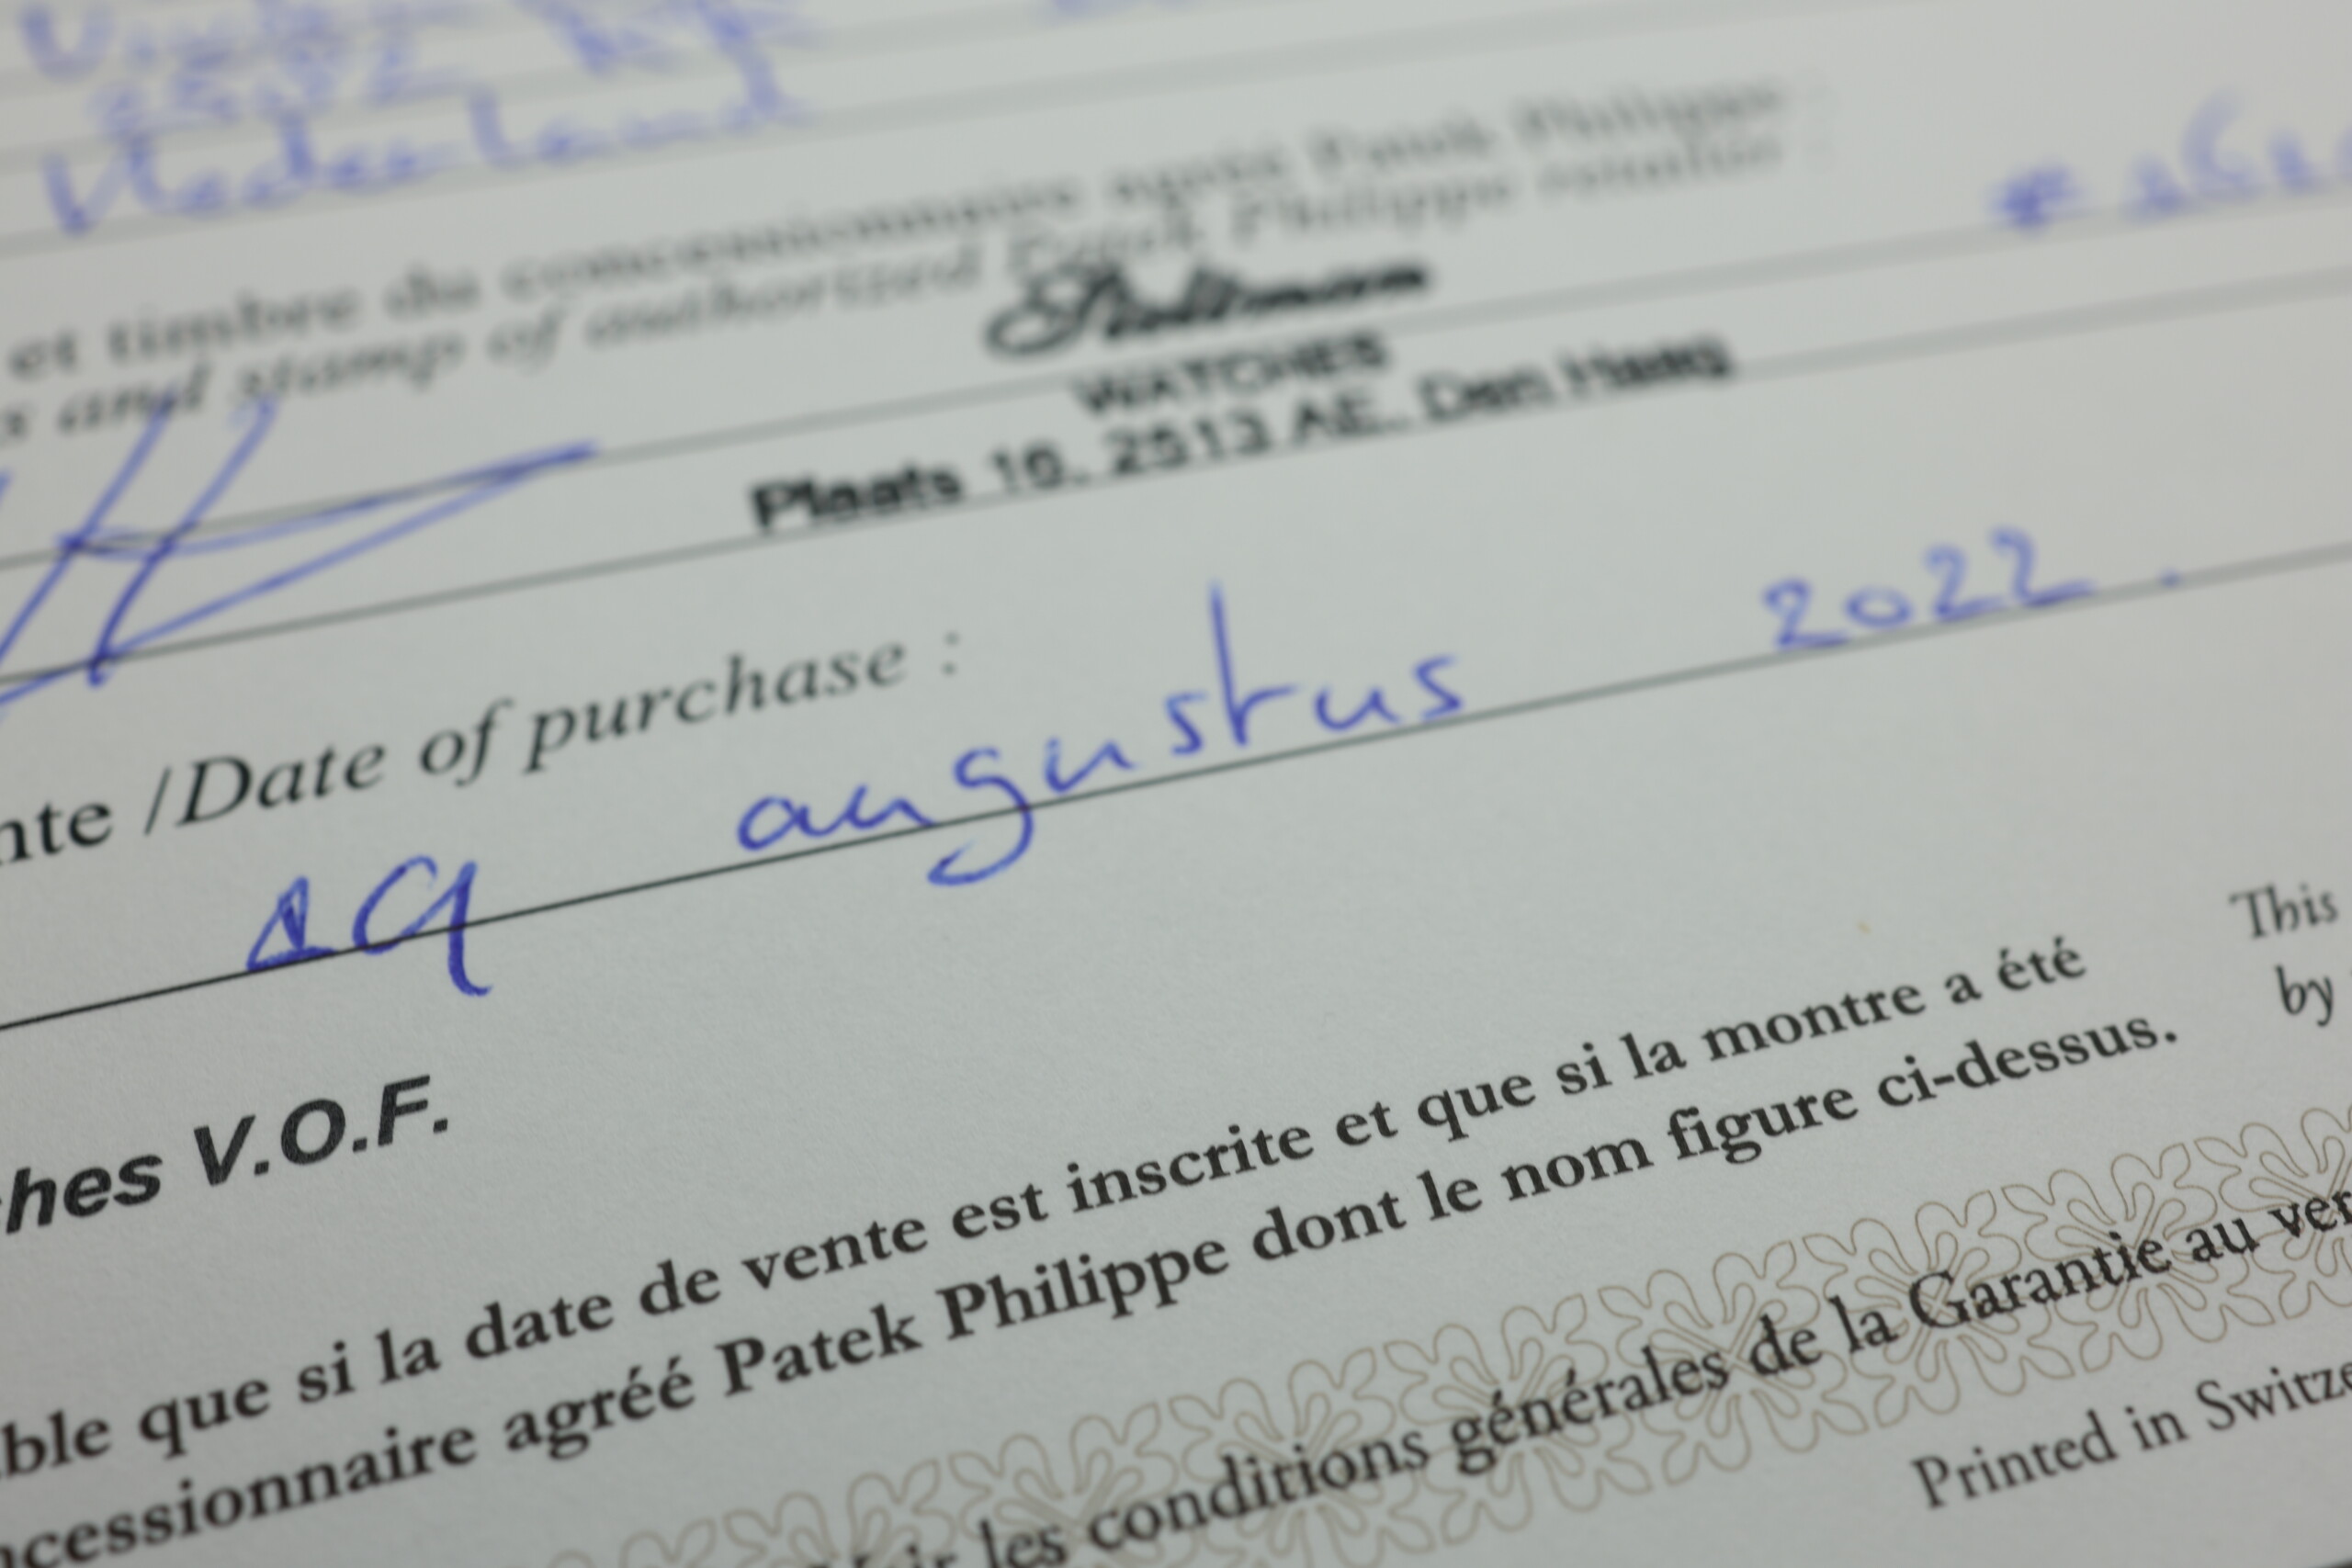 Nederland
et timbre du concessionnaire agréé Patek Philippe :
s and stamp of authorized Patek Philippe retailer :
Stoltman
WATCHES
Plaats 16, 2513 AE, Den Haag
nte / Date of purchase :
19 augustus 2022.
ches V.O.F.
ble que si la date de vente est inscrite et que si la montre a été
ncessionnaire agréé Patek Philippe dont le nom figure ci-dessus.
This
by
les conditions générales de la Garantie au ver
Printed in Switze